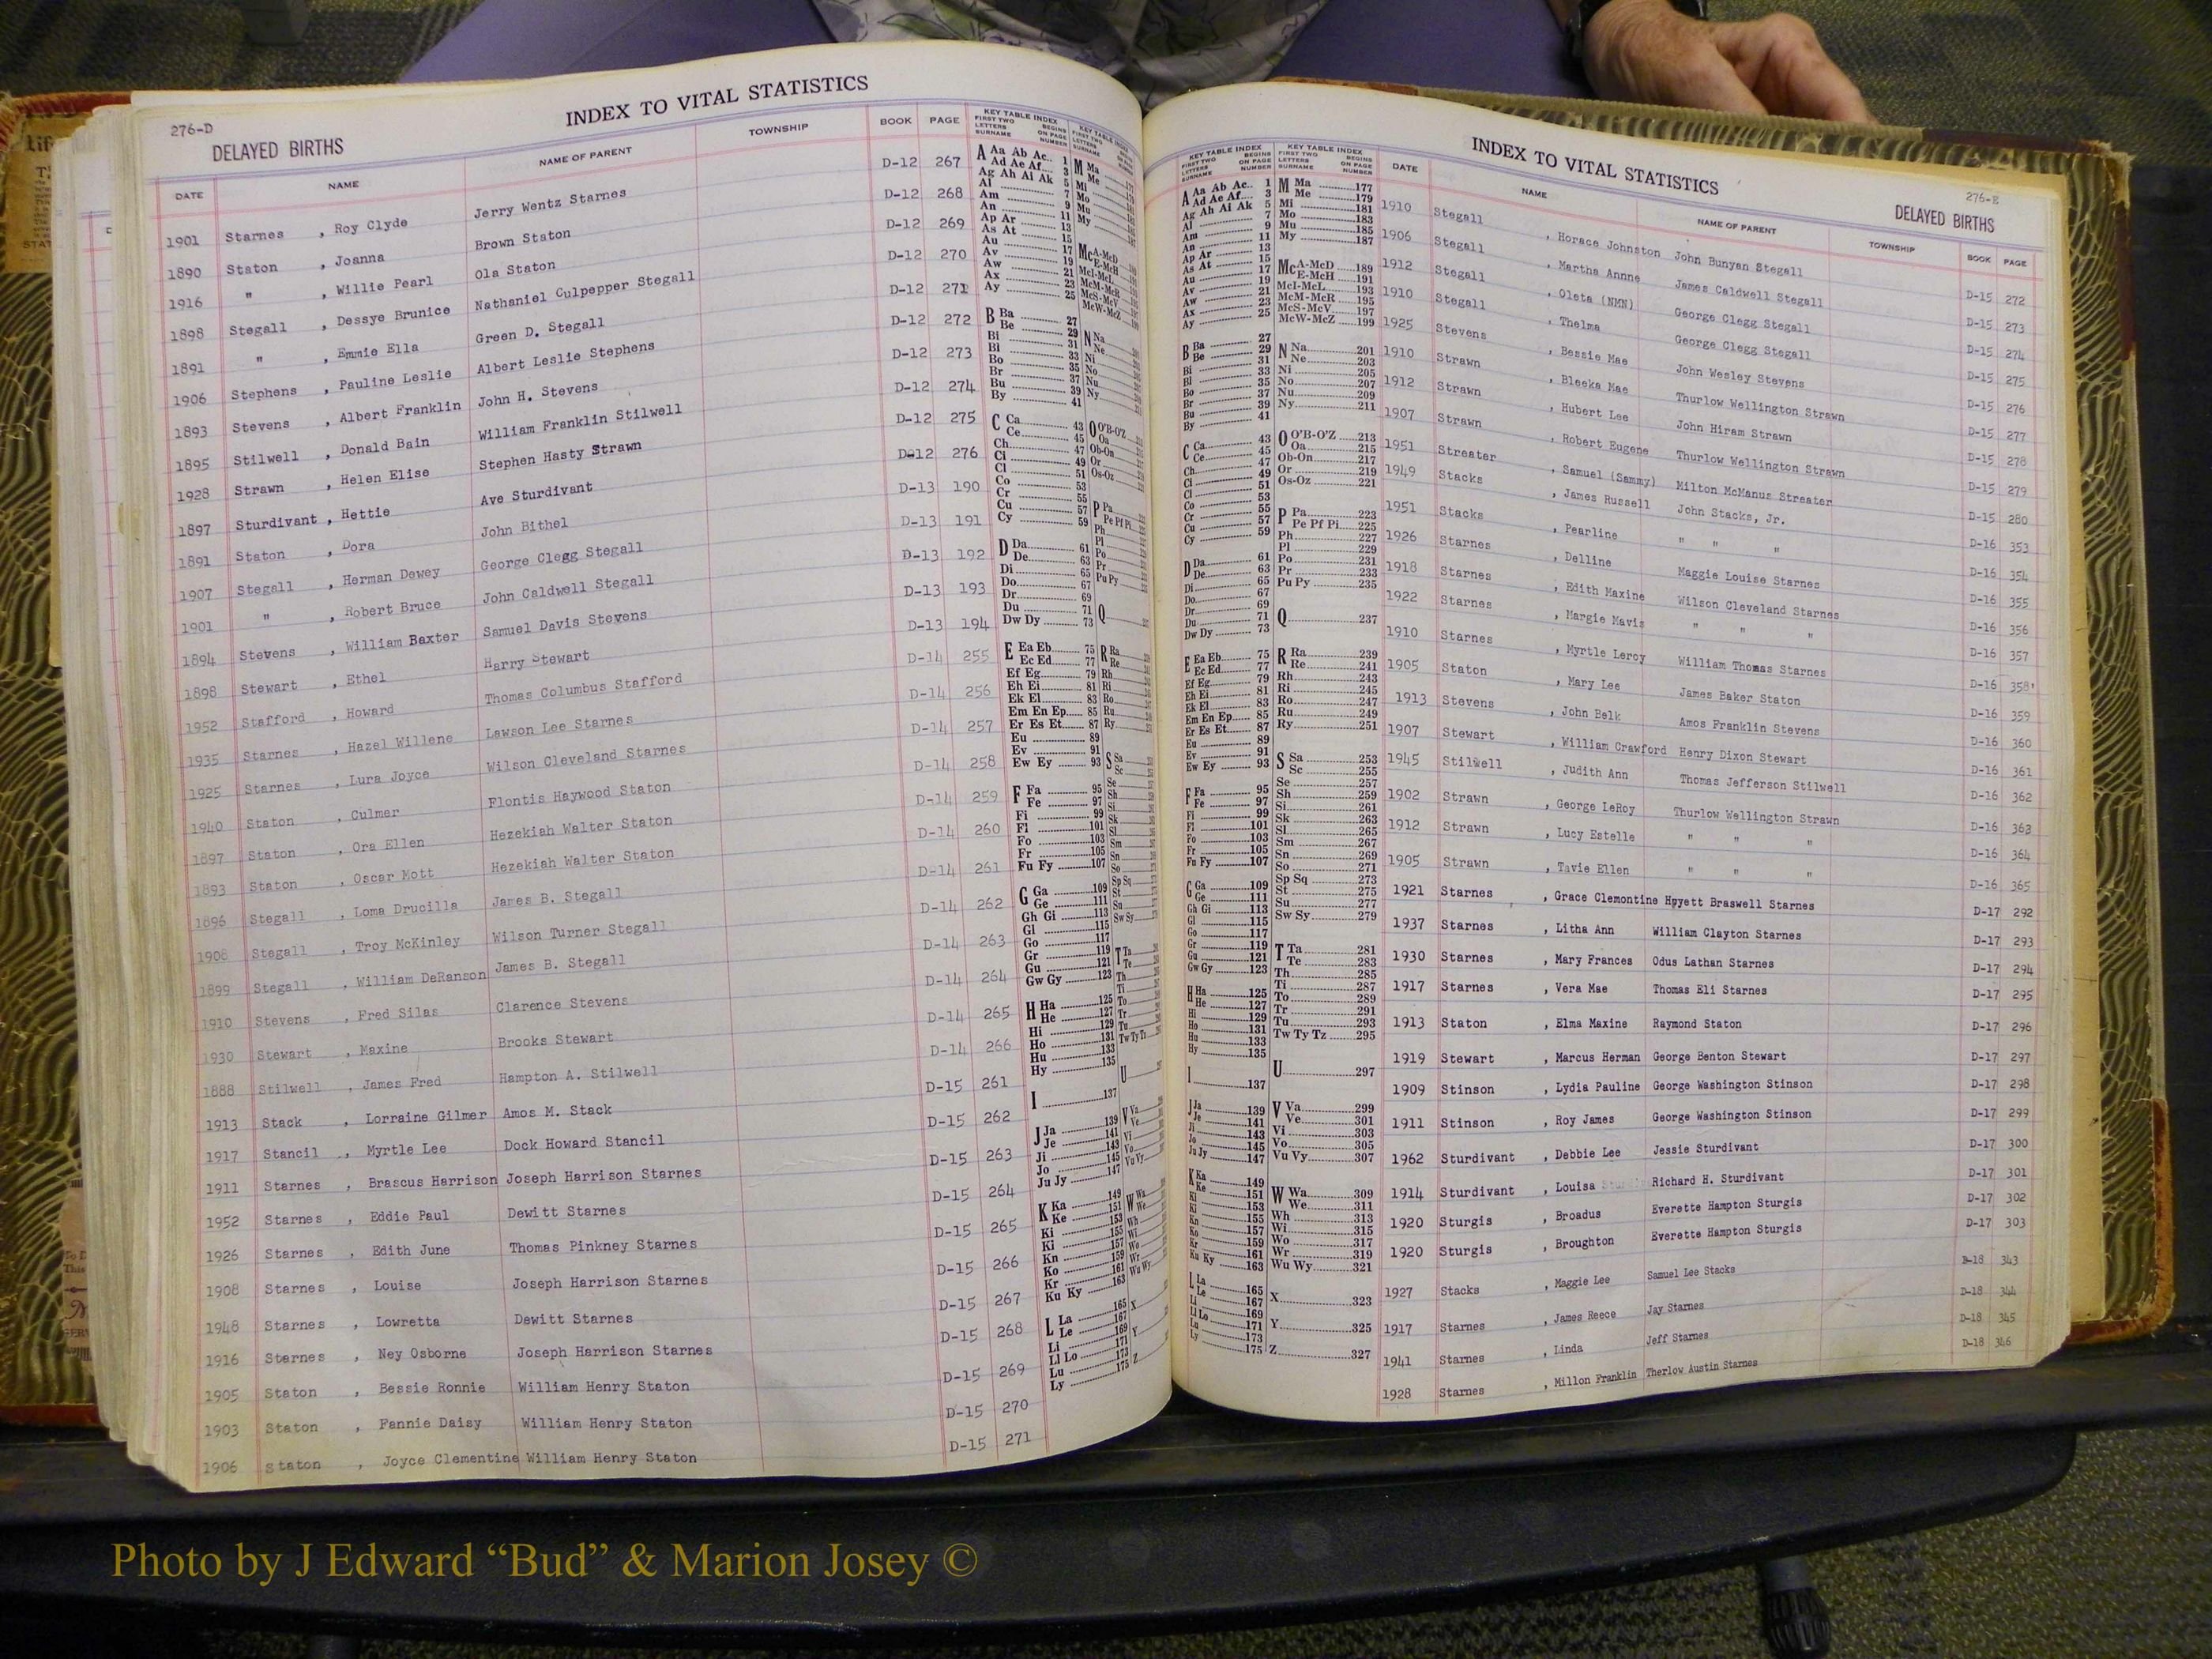 INDEX TO VITAL STATISTICS
276-D
DELAYED BIRTHS
DATE NAME NAME OF PARENT TOWNSHIP BOOK PAGE
1901 Starnes , Roy Clyde Jerry Wentz Starnes D-12 267
1890 Staton , Joanna Brown Staton D-12 268
1916 " , Willie Pearl Ola Staton D-12 269
1898 Stegall , Dessye Brunice Nathaniel Culpepper Stegall D-12 270
1891 " , Emmie Ella Green D. Stegall D-12 271
1906 Stephens , Pauline Leslie Albert Leslie Stephens D-12 272
1893 Stevens , Albert Franklin John H. Stevens D-12 273
1895 Stilwell , Donald Bain William Franklin Stilwell D-12 274
1928 Strawn , Helen Elise Stephen Hasty Strawn D-12 275
1897 Sturdivant , Hettie Ave Sturdivant D-12 276
1891 Staton , Dora John Bithel D-13 190
1907 Stegall , Herman Dewey George Clegg Stegall D-13 191
1901 " , Robert Bruce John Caldwell Stegall D-13 192
1894 Stevens , William Baxter Samuel Davis Stevens D-13 193
1898 Stewart , Ethel Harry Stewart D-13 194
1952 Stafford , Howard Thomas Columbus Stafford D-14 255
1935 Starnes , Hazel Willene Lawson Lee Starnes D-14 256
1925 Starnes , Lura Joyce Wilson Cleveland Starnes D-14 257
1940 Staton , Culmer Flontis Haywood Staton D-14 258
1897 Staton , Ora Ellen Hezekiah Walter Staton D-14 259
1893 Staton , Oscar Mott Hezekiah Walter Staton D-14 260
1896 Stegall , Loma Drucilla James B. Stegall D-14 261
1908 Stegall , Troy McKinley Wilson Turner Stegall D-14 262
1899 Stegall , William DeRanson James B. Stegall D-14 263
1910 Stevens , Fred Silas Clarence Stevens D-14 264
1930 Stewart , Maxine Brooks Stewart D-14 265
1888 Stilwell , James Fred Hampton A. Stilwell D-14 266
1913 Stack , Lorraine Gilmer Amos M. Stack D-15 261
1917 Stancil , Myrtle Lee Dock Howard Stancil D-15 262
1911 Starnes , Brascus Harrison Joseph Harrison Starnes D-15 263
1952 Starnes , Eddie Paul Dewitt Starnes D-15 264
1926 Starnes , Edith June Thomas Pinkney Starnes D-15 265
1908 Starnes , Louise Joseph Harrison Starnes D-15 266
1948 Starnes , Lowretta Dewitt Starnes D-15 267
1916 Starnes , Ney Osborne Joseph Harrison Starnes D-15 268
1905 Staton , Bessie Ronnie William Henry Staton D-15 269
1903 Staton , Fannie Daisy William Henry Staton D-15 270
1906 Staton , Joyce Clementine William Henry Staton D-15 271
INDEX TO VITAL STATISTICS
276-E
DELAYED BIRTHS
KEY TABLE INDEX KEY TABLE INDEX
FIRST TWO LETTERS SURNAME BEGINS ON PAGE NUMBER
A Aa Ab Ac.. 1
Ad Ae Af.... 3
Ag Ah Ai Ak 5
Al 7
Am 9
An 11
Ap Ar 13
As At 15
Au 17
Av 19
Aw 21
Ax 23
Ay 25
B Ba 27
Be 29
Bi 31
Bl 33
Bo 35
Br 37
Bu 39
By 41
C Ca 43
Ce 45
Ch 47
Ci 49
Cl 51
Co 53
Cr 55
Cu 57
Cy 59
D Da 61
De 63
Di 65
Do 67
Dr 69
Du 71
Dw Dy 73
E Ea Eb 75
Ec Ed 77
Ef Eg 79
Eh Ei 81
Ek El 83
Em En Ep 85
Er Es Et 87
Eu 89
Ev 91
Ew Ey 93
F Fa 95
Fe 97
Fi 99
Fl 101
Fo 103
Fr 105
Fu Fy 107
G Ga 109
Ge 111
Gh Gi 113
Gl 115
Go 117
Gr 119
Gu 121
Gw Gy 123
H Ha 125
He 127
Hi 129
Ho 131
Hu 133
Hy 135
I 137
J Ja 139
Je 141
Ji 143
Jo 145
Ju Jy 147
K Ka 149
Ke 151
Ki 153
Kl 155
Kn 157
Ko 159
Kr 161
Ku Ky 163
L La 165
Le 167
Li 169
Ll Lo 171
Lu 173
Ly 175
M Ma 177
Me 179
Mi 181
Mo 183
Mu 185
My 187
Mc A-McD 189
E-McH 191
McI-McL 193
McM-McR 195
McS-McV 197
McW-McZ 199
N Na 201
Ne 203
Ni 205
No 207
Nu 209
Ny 211
O O'B-O'Z 213
Oa 215
Ob-On 217
Or 219
Os-Oz 221
P Pa 223
Pe Pf Pi 225
Ph 227
Pl 229
Po 231
Pr 233
Pu Py 235
Q 237
R Ra 239
Re 241
Rh 243
Ri 245
Ro 247
Ru 249
Ry 251
S Sa 253
Sc 255
Se 257
Sh 259
Si 261
Sk 263
Sl 265
Sm 267
Sn 269
So 271
Sp Sq 273
St 275
Su 277
Sw Sy 279
T Ta 281
Te 283
Th 285
Ti 287
To 289
Tr 291
Tu 293
Tw Ty Tz 295
U 297
V Va 299
Ve 301
Vi 303
Vo 305
Vu Vy 307
W Wa 309
We 311
Wh 313
Wi 315
Wo 317
Wr 319
Wu Wy 321
X 323
Y 325
Z 327
DATE NAME NAME OF PARENT TOWNSHIP BOOK PAGE
1910 Stegall , Horace Johnston John Bunyan Stegall D-15 272
1906 Stegall , Martha Annne James Caldwell Stegall D-15 273
1912 Stegall , Oleta (NMN) George Clegg Stegall D-15 274
1910 Stegall , Thelma George Clegg Stegall D-15 275
1925 Stevens , Bessie Mae John Wesley Stevens D-15 276
1910 Strawn , Bleeka Mae Thurlow Wellington Strawn D-15 277
1912 Strawn , Hubert Lee John Hiram Strawn D-15 278
1907 Strawn , Robert Eugene Thurlow Wellington Strawn D-15 279
1951 Streater , Samuel (Sammy) Milton McManus Streater D-15 280
1949 Stacks , James Russell John Stacks, Jr. D-16 353
1951 Stacks , Pearline " " " D-16 354
1926 Starnes , Delline Maggie Louise Starnes D-16 355
1918 Starnes , Edith Maxine Wilson Cleveland Starnes D-16 356
1922 Starnes , Margie Mavis " " " D-16 357
1910 Starnes , Myrtle Leroy William Thomas Starnes D-16 358
1905 Staton , Mary Lee James Baker Staton D-16 359
1913 Stevens , John Belk Amos Franklin Stevens D-16 360
1907 Stewart , William Crawford Henry Dixon Stewart D-16 361
1945 Stilwell , Judith Ann Thomas Jefferson Stilwell D-16 362
1902 Strawn , George LeRoy Thurlow Wellington Strawn D-16 363
1912 Strawn , Lucy Estelle " " " D-16 364
1905 Strawn , Tavie Ellen " " " D-16 365
1921 Starnes , Grace Clementine Hpyett Braswell Starnes D-17 292
1937 Starnes , Litha Ann William Clayton Starnes D-17 293
1930 Starnes , Mary Frances Odus Lathan Starnes D-17 294
1917 Starnes , Vera Mae Thomas Eli Starnes D-17 295
1913 Staton , Elma Maxine Raymond Staton D-17 296
1919 Stewart , Marcus Herman George Benton Stewart D-17 297
1909 Stinson , Lydia Pauline George Washington Stinson D-17 298
1911 Stinson , Roy James George Washington Stinson D-17 299
1962 Sturdivant , Debbie Lee Jessie Sturdivant D-17 300
1914 Sturdivant , Louisa Richard H. Sturdivant D-17 301
1920 Sturgis , Broadus Everette Hampton Sturgis D-17 302
1920 Sturgis , Broughton Everette Hampton Sturgis D-17 303
1927 Stacks , Maggie Lee Samuel Lee Stacks D-18 343
1917 Starnes , James Reece Jay Starnes D-18 344
1941 Starnes , Linda Jeff Starnes D-18 345
1928 Starnes , Millon Franklin Therlow Austin Starnes D-18 346
Photo by J Edward “Bud” & Marion Josey ©